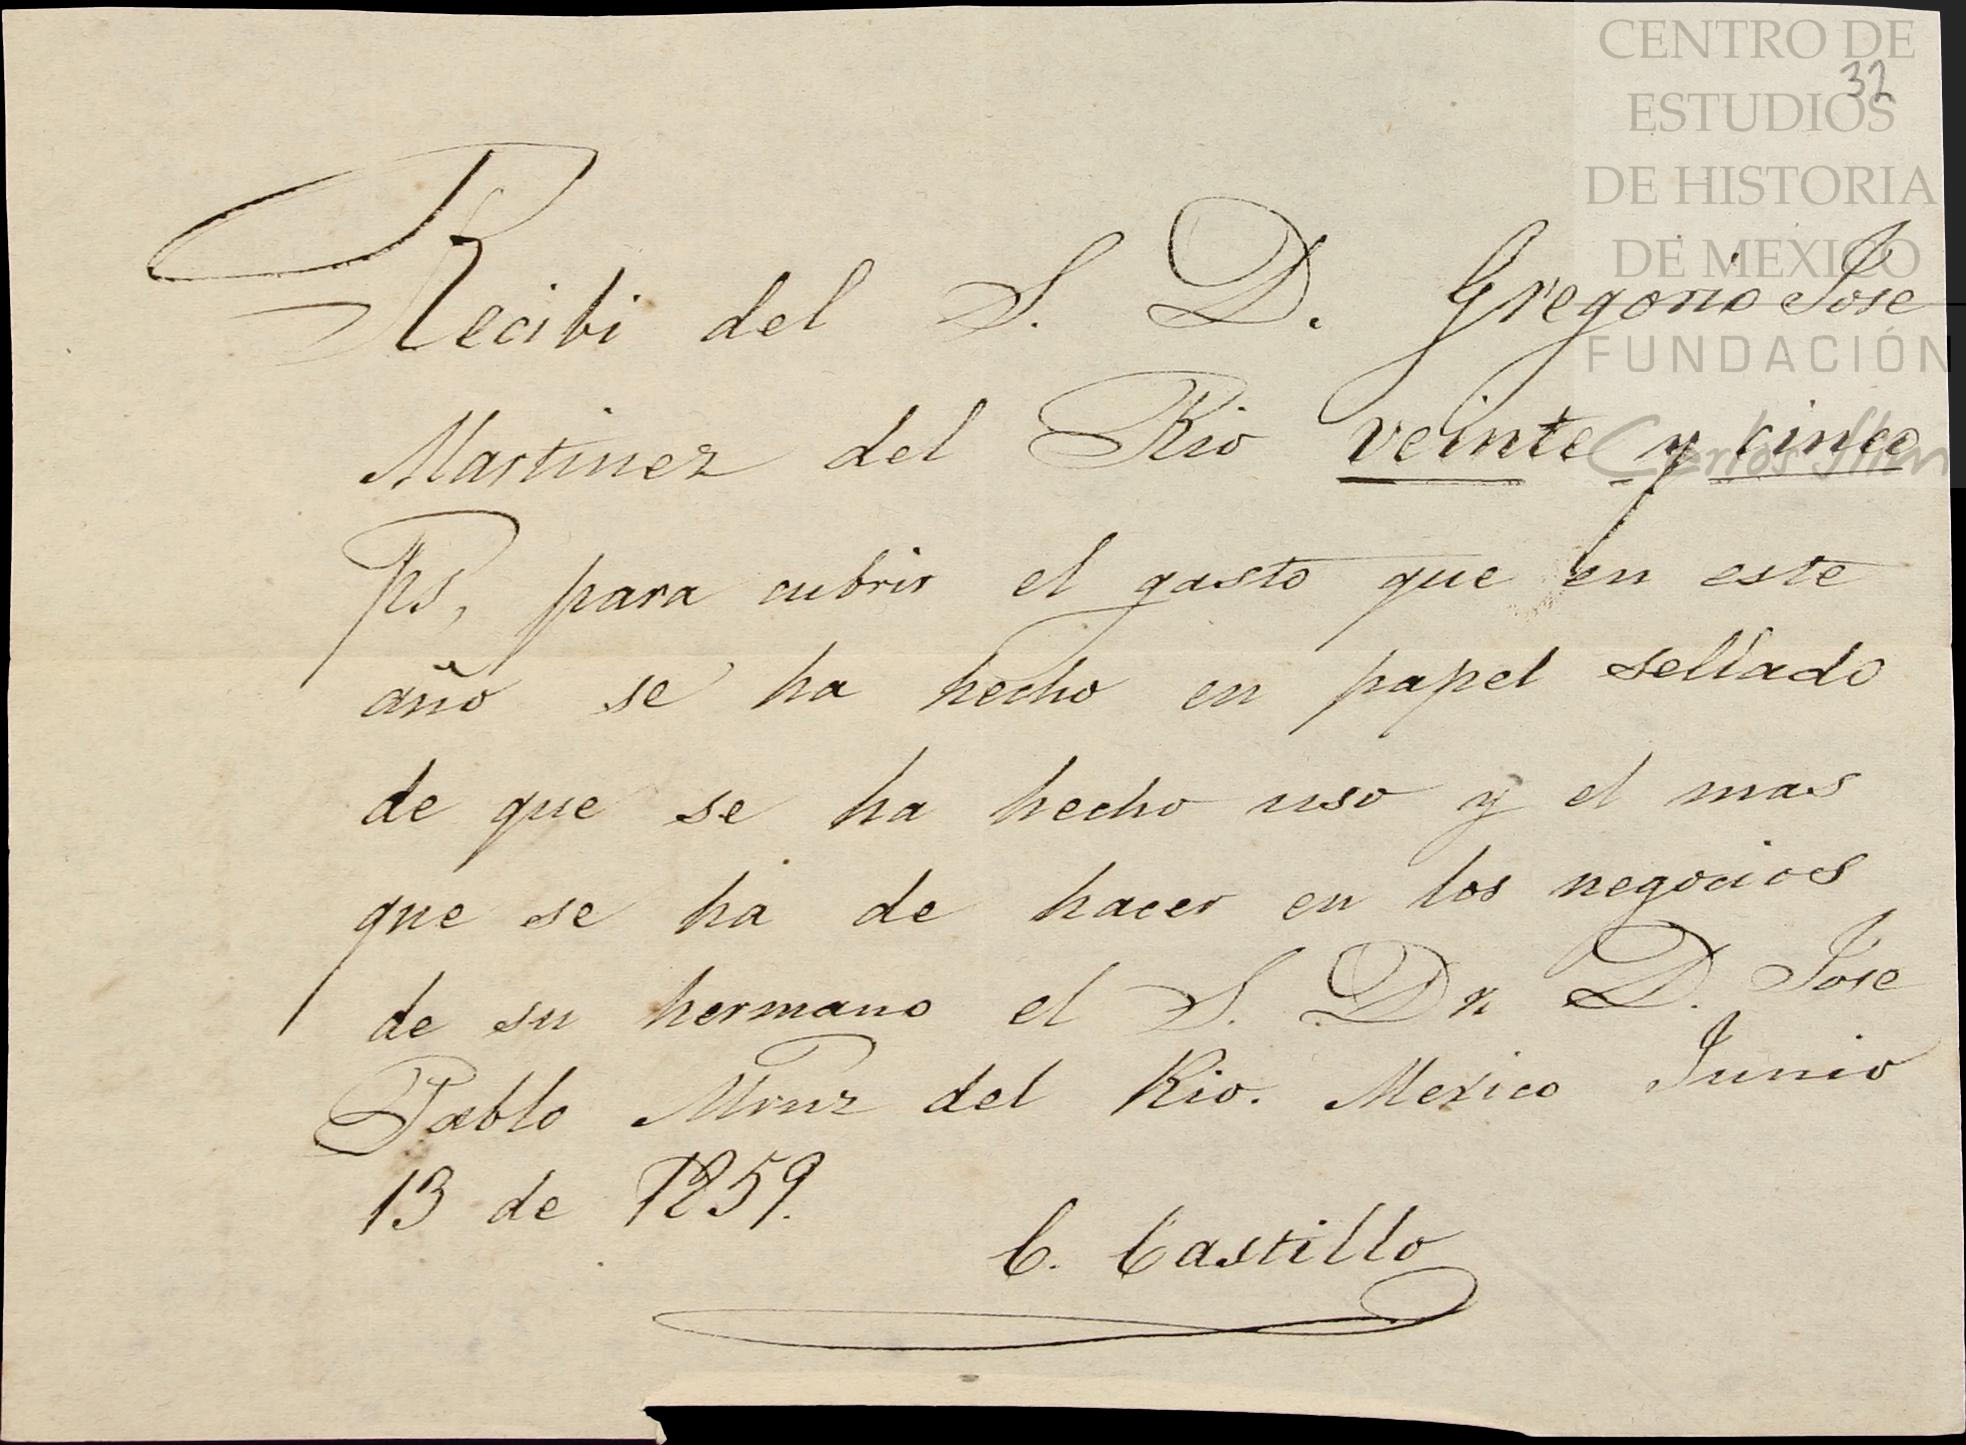 CENTRO DE
32
ESTUDIOS
DE HISTORIA
DE MEXICO
FUNDACIÓN
Carlos Slim
Recibi del S. D. Gregorio Jose
Martinez del Rio veinte y cinco
ps, para cubrir el gasto que en este
año se ha hecho en papel sellado
de que se ha hecho uso y el mas
que se ha de hacer en los negocios
de su hermano el S. Dr. D. Jose
Pablo Mrnz del Rio. Mexico Junio
13 de 1859.
C. Castillo